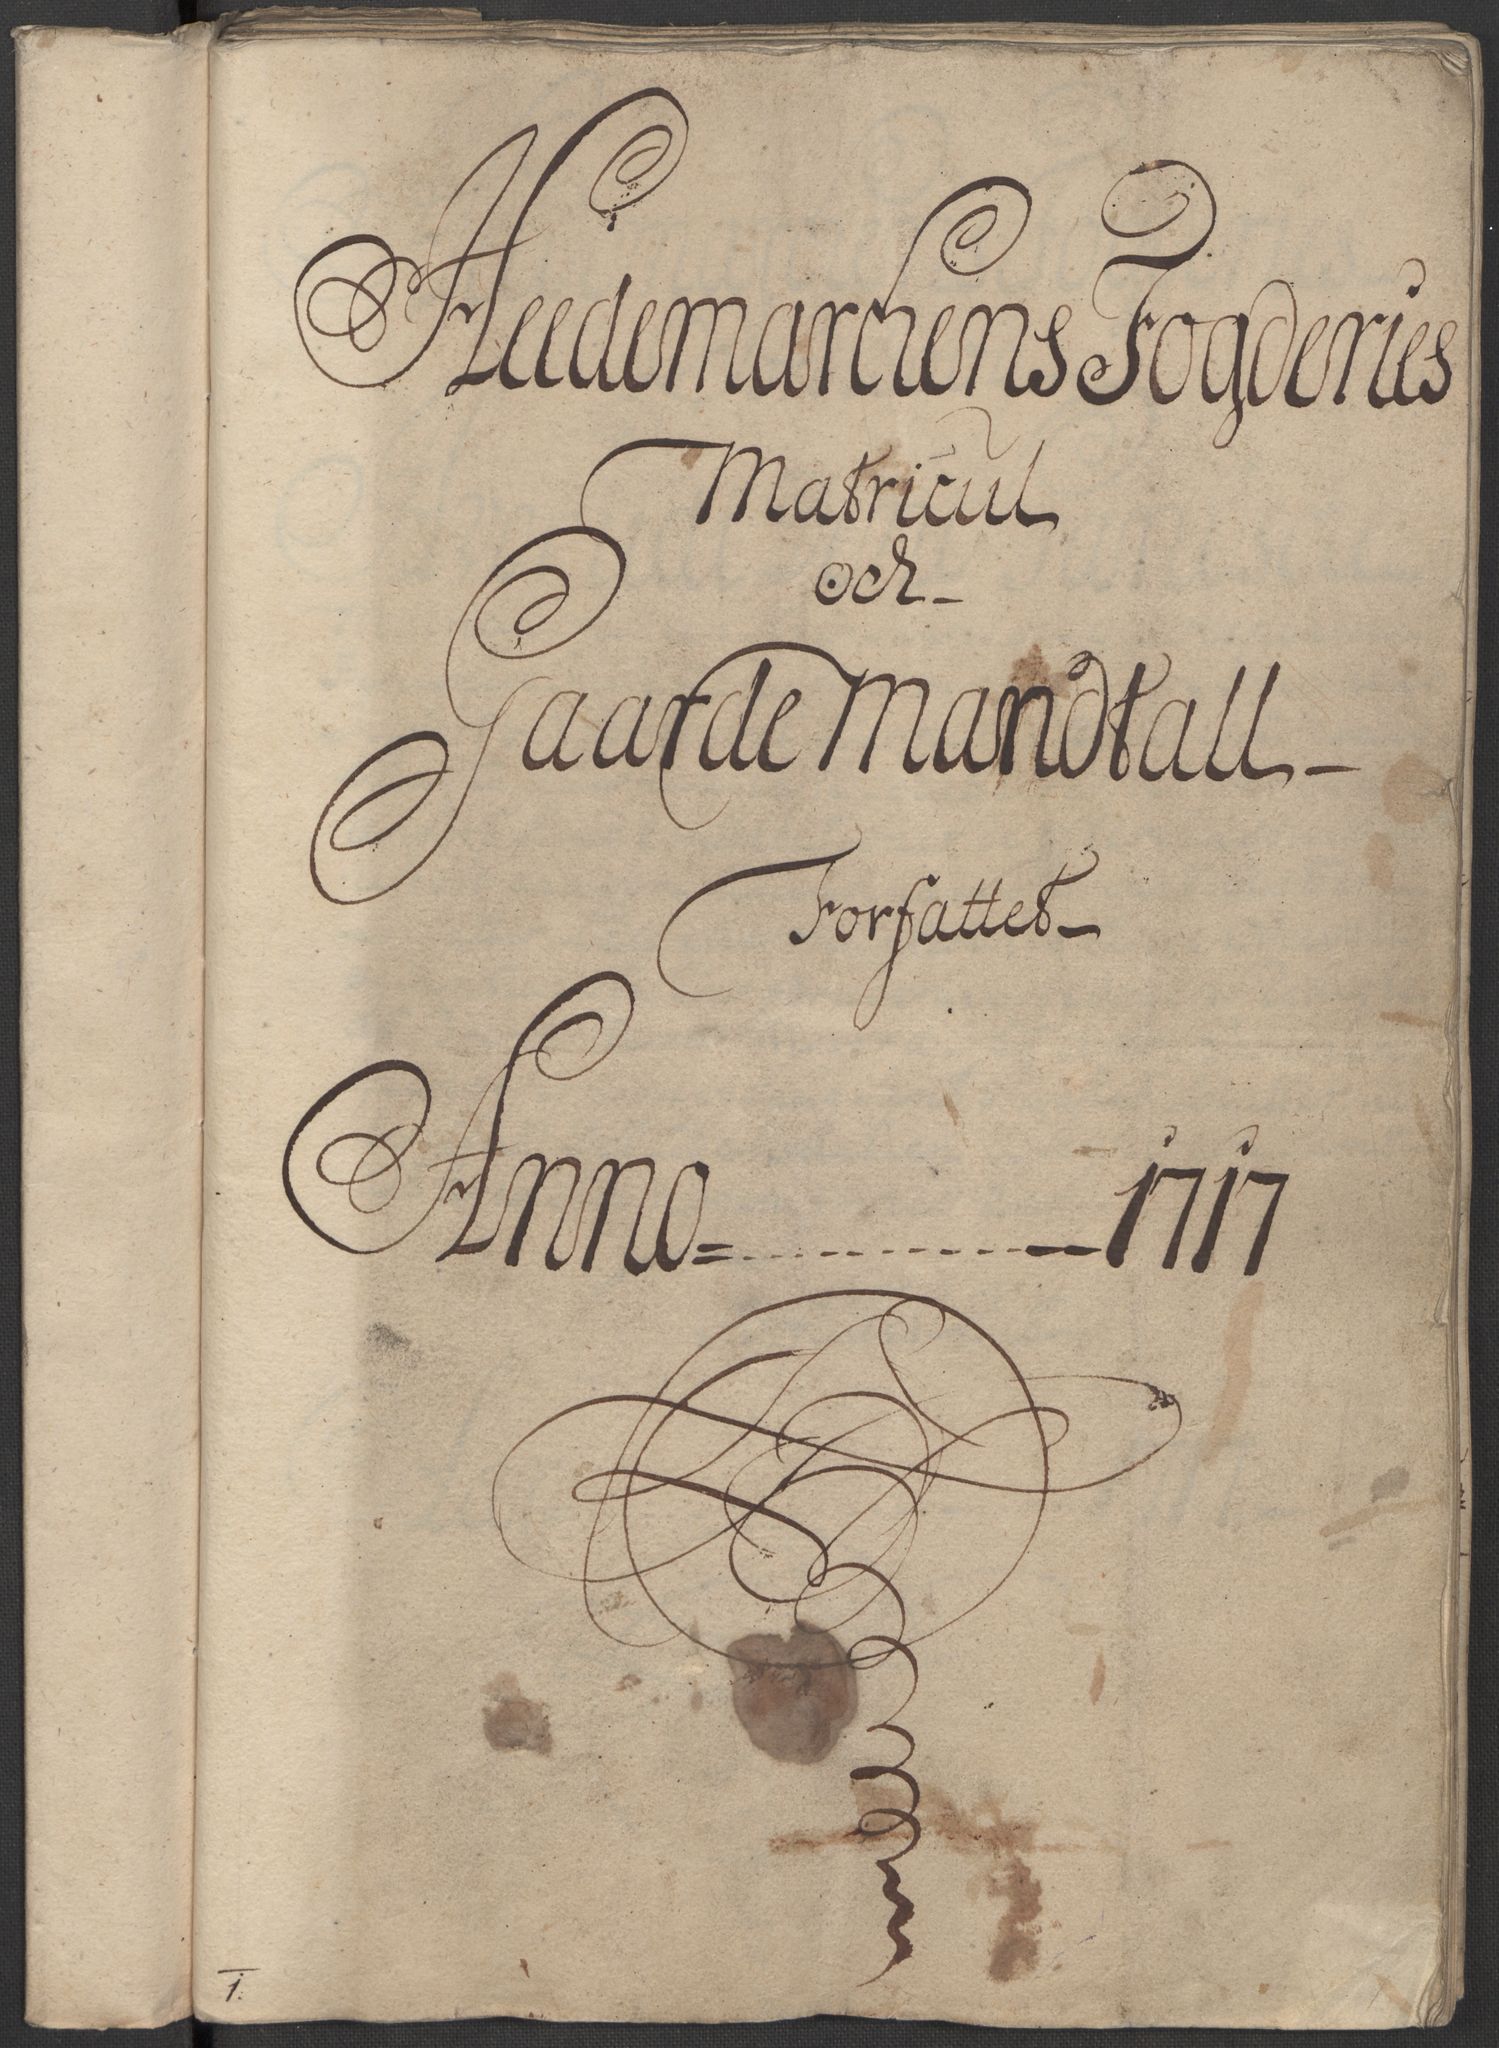 Heedemarchens Fogderies
Matricul
och
Gaarde Mandtall
Forfattet
Anno = - - - - - - - 1717
1.